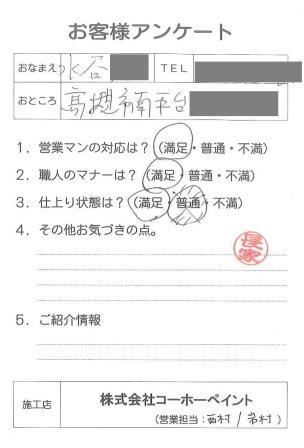 お客様アンケート
おなまえ 水谷 TEL
おところ 高槻市南平台
1. 営業マンの対応は? (満足・普通・不満)
2. 職人のマナーは? (満足・普通・不満)
3. 仕上り状態は? (満足・普通・不満)
4. その他お気づきの点。
長家
5. ご紹介情報
施工店 株式会社コーホーペイント
(営業担当:西村 / 岩村)